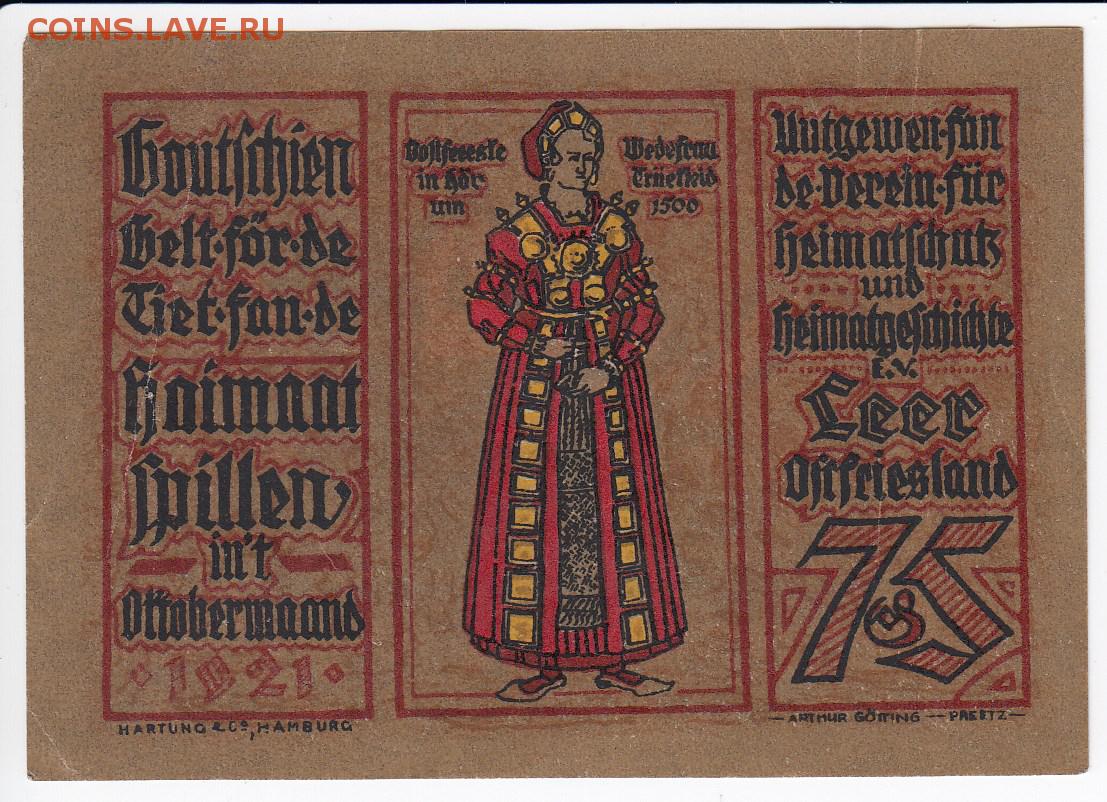 COINS.LAVE.RU
Goutschien
Gelt·för·de
Tiet·fan·de
Haimaat
spillen,
in't
Oktobermaand
·1921·
HARTUNG & Co, HAMBURG
Oostfreeske
in hör
um
Wedefrau
1500
Uutgewen·fan
de·Verein·für
Heimatschutz
und
Heimatgeschichte
E.V.
Leer
Ostfriesland
75
ARTHUR GÖTTING — PREETZ